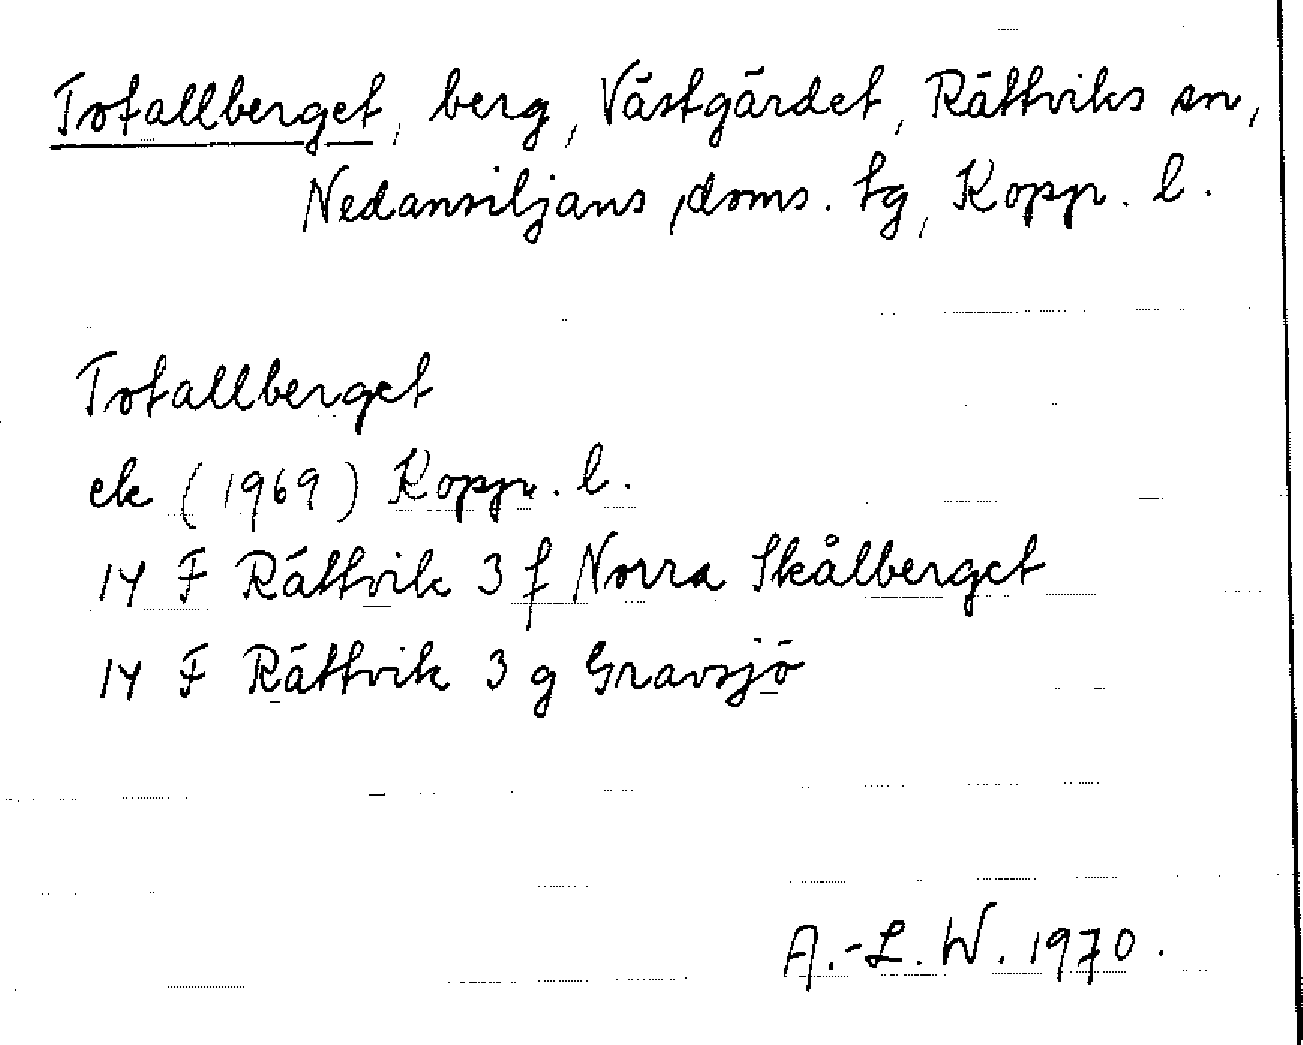 Totallberget, berg, Västgärdet, Rättviks sn,
Nedansiljans, doms. tg, Kopp. l.
Totallberget
ek (1969) Kopp. l.
14 F Rättvik 3 f Norra Skålberget
14 F Rättvik 3 g Gravsjö
A.-L. W. 1970.